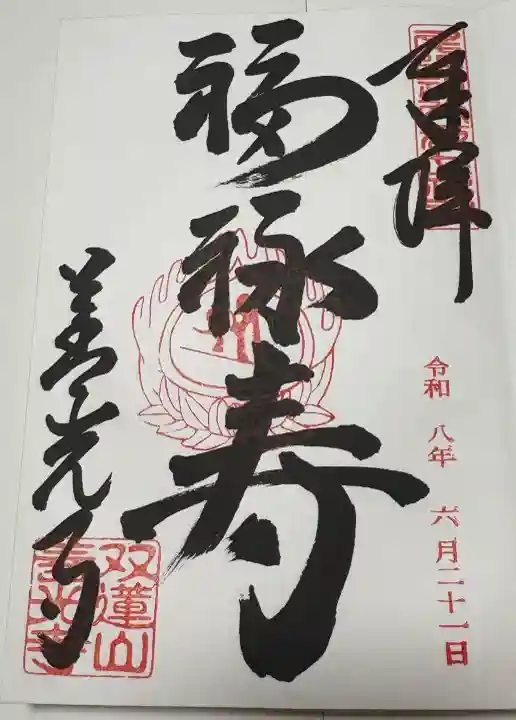 奉拝
令和 八年 六月二十一日
福禄寿
善光寺
双蓮山
善光寺